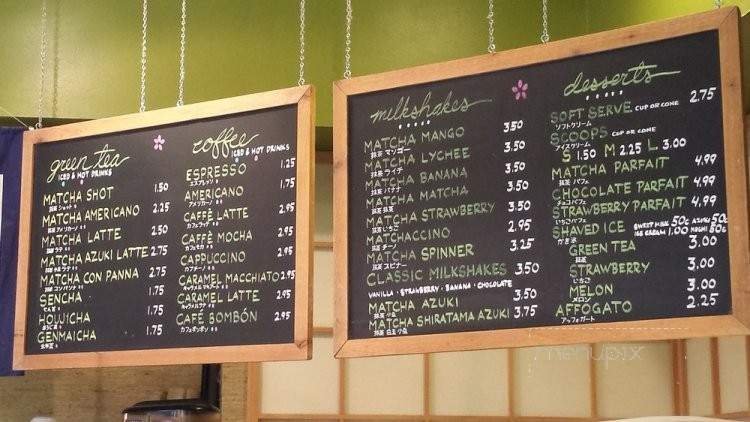 green tea
ICED & HOT DRINKS
MATCHA SHOT 1.50
MATCHA AMERICANO 2.25
MATCHA LATTE 2.50
MATCHA AZUKI LATTE 2.75
MATCHA CON PANNA 2.75
SENCHA 1.75
HOJICHA 1.75
GENMAICHA 1.75
coffee
ICED & HOT DRINKS
ESPRESSO 1.25
エスプレッソ
AMERICANO 1.75
CAFFÈ LATTE 2.95
CAFFÈ MOCHA 2.95
CAPPUCCINO 2.95
CARAMEL MACCHIATO 2.95
CARAMEL LATTE 2.95
CAFÉ BOMBÓN 2.95
milkshakes
MATCHA MANGO 3.50
抹茶 マンゴー
MATCHA LYCHEE 3.50
抹茶 ライチ
MATCHA BANANA 3.50
抹茶 バナナ
MATCHA MATCHA 3.50
抹茶 抹茶
MATCHA STRAWBERRY 3.50
抹茶 いちご
MATCHACCINO 2.95
MATCHA SPINNER 3.25
CLASSIC MILKSHAKES 3.50
VANILLA · STRAWBERRY · BANANA · CHOCOLATE
MATCHA AZUKI 3.50
抹茶 小豆
MATCHA SHIRATAMA AZUKI 3.75
抹茶 白玉 小豆
desserts
SOFT SERVE CUP OR CONE 2.75
ソフトクリーム
SCOOPS CUP OR CONE
アイスクリーム
S 1.50 M 2.25 L 3.00
MATCHA PARFAIT 4.99
抹茶 パフェ
CHOCOLATE PARFAIT 4.99
チョコパフェ
STRAWBERRY PARFAIT 4.99
いちごパフェ
SHAVED ICE SWEET MILK 50¢ AZUKI 50¢
かき氷 ICE CREAM 1.00 MOCHI 50¢
GREEN TEA 3.00
抹茶
STRAWBERRY 3.00
いちご
MELON 3.00
メロン
AFFOGATO 2.25
アッフォガート
menupix